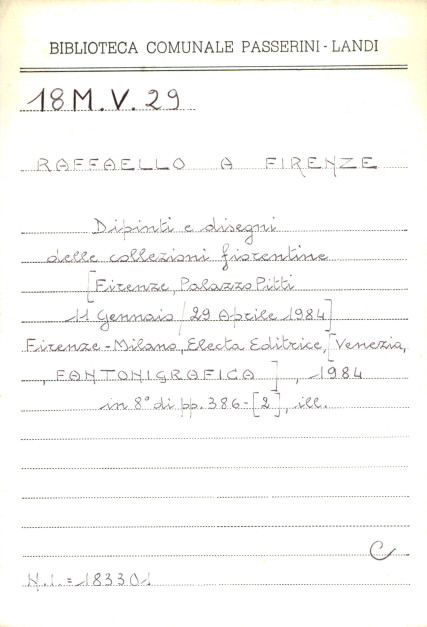 BIBLIOTECA COMUNALE PASSERINI - LANDI
18 M. V. 29
RAFFAELLO A FIRENZE
Dipinti e disegni
delle collezioni fiorentine
[Firenze, Palazzo Pitti
11 Gennaio / 29 Aprile 1984]
Firenze - Milano, Electa Editrice, [Venezia,
, FANTONIGRAFICA ] , 1984
in 8° di pp. 386-[2], ill.
C
N.I. = 183301